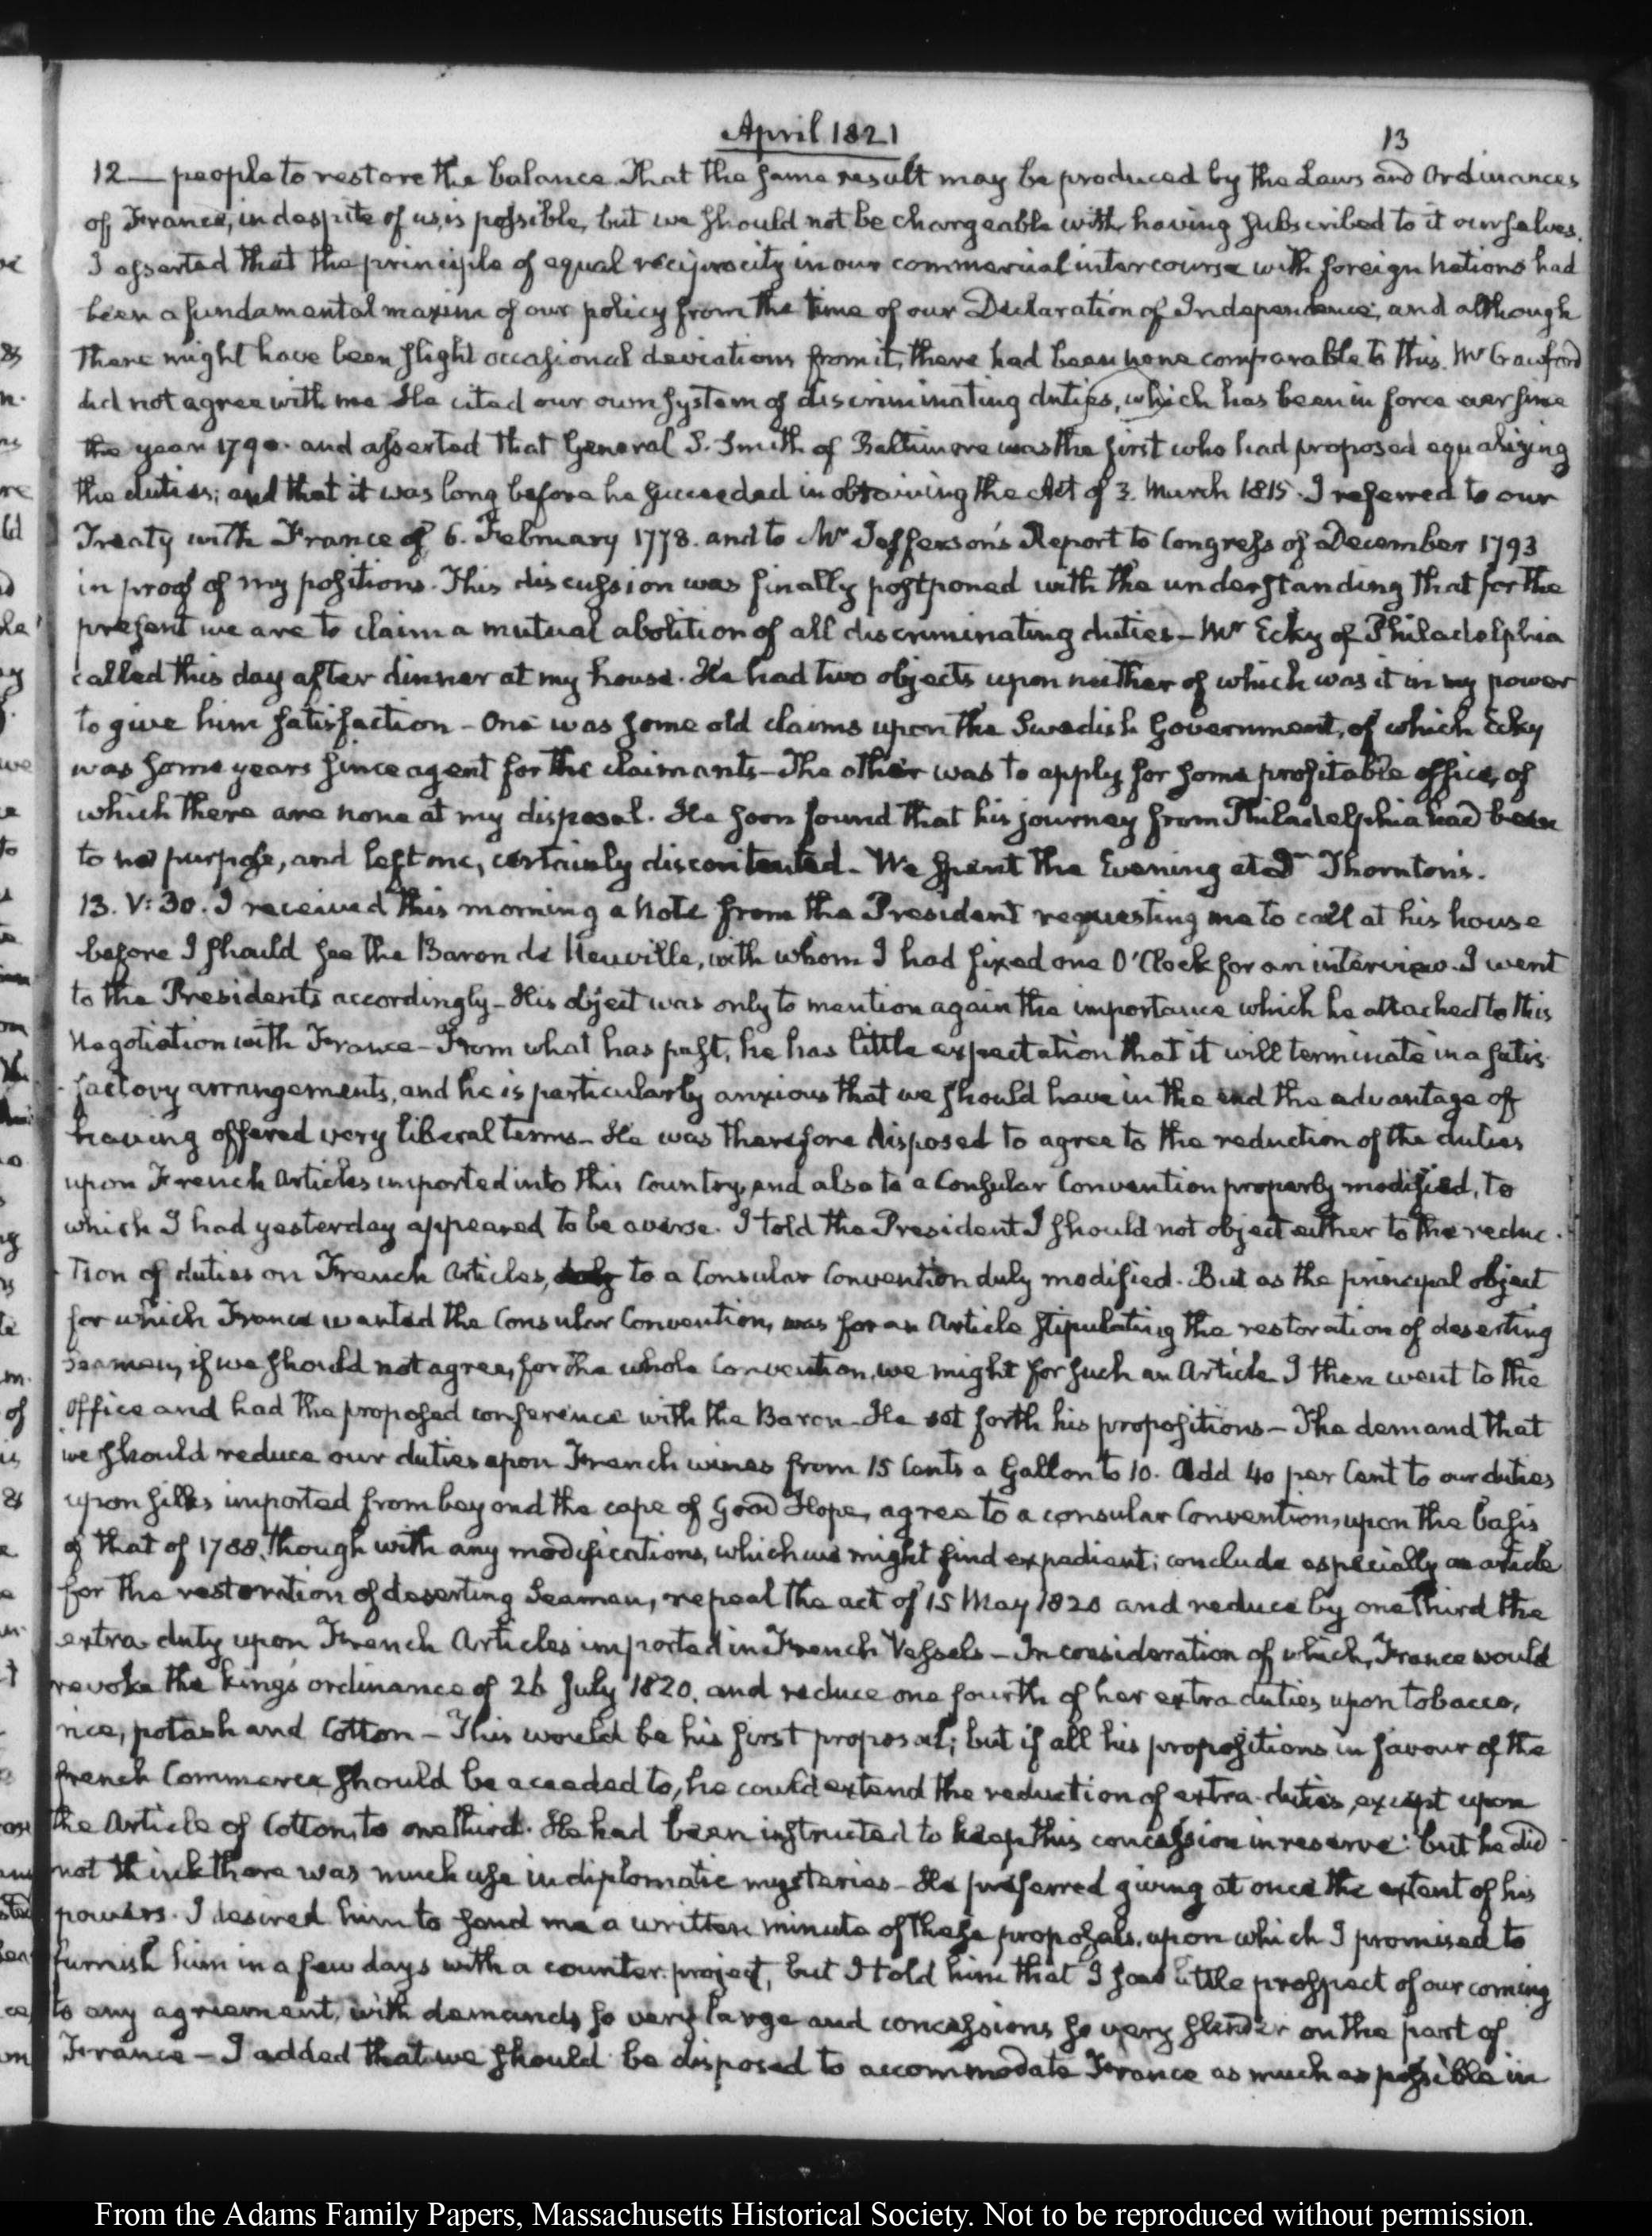 April 1821
13
12 — people to restore the balance. That the same result may be produced by the Laws and Ordinances
of France, in despite of us, is possible, but we should not be chargeable with having subscribed to it ourselves.
I asserted that the principle of equal reciprocity in our commercial intercourse with foreign Nations had
been a fundamental maxim of our policy from the time of our Declaration of Independence; and although
there might have been slight occasional deviations from it, there had been none comparable to this. Mr Crawford
did not agree with me. He cited our own system of discriminating duties, which has been in force ever since
the year 1790. and asserted that General S. Smith of Baltimore was the first who had proposed equalizing
the duties; and that it was long before he succeeded in obtaining the Act of 3. March 1815. I referred to our
Treaty with France of 6. February 1778. and to Mr Jefferson's Report to Congress of December 1793
in proof of my positions. This discussion was finally postponed with the understanding that for the
present we are to claim a mutual abolition of all discriminating duties — Mr Ecky of Philadelphia
called this day after dinner at my house. He had two objects upon neither of which was it in my power
to give him satisfaction — One was some old claims upon the Swedish Government, of which Ecky
was some years since agent for the claimants — The other was to apply for some profitable office, of
which there are none at my disposal. He soon found that his journey from Philadelphia had been
to no purpose, and left me, certainly discontented — We spent the Evening at Dr Thornton's.
13. V:30. I received this morning a Note from the President requesting me to call at his house
before I should see the Baron de Neuville, with whom I had fixed one O'Clock for an interview. I went
to the Presidents accordingly — His object was only to mention again the importance which he attached to this
Negotiation with France — From what has past, he has little expectation that it will terminate in a satis-
factory arrangements, and he is particularly anxious that we should have in the end the advantage of
having offered very liberal terms — He was therefore disposed to agree to the reduction of the duties
upon French Articles imported into this Country, and also to a Consular Convention properly modified, to
which I had yesterday appeared to be averse. I told the President I should not object either to the reduc-
tion of duties on French Articles, to a Consular Convention duly modified. But as the principal object
for which France wanted the Consular Convention, was for an Article stipulating the restoration of deserting
Seamen, if we should not agree, for the whole Convention, we might for such an Article. I then went to the
Office and had the proposed conference with the Baron — He set forth his propositions — The demand that
we should reduce our duties upon French wines from 15 Cents a Gallon to 10. Add 40 per Cent to our duties
upon silks imported from beyond the cape of Good Hope, agree to a consular Convention, upon the basis
of that of 1788, though with any modifications, which we might find expedient; conclude especially an article
for the restoration of deserting Seamen, repeal the act of 15 May 1820 and reduce by one third the
extra duty upon French Articles imported in French Vessels — In consideration of which, France would
revoke the king's ordinance of 26 July 1820, and reduce one fourth of her extra duties upon tobacco,
rice, potash and Cotton — This would be his first proposal; but if all his propositions in favour of the
french Commerce should be acceded to, he could extend the reduction of extra-duties, except upon
the Article of Cotton, to one third. He had been instructed to keep this concession in reserve: but he did
not think there was much use in diplomatic mysteries — He preferred giving at once the extent of his
powers. I desired him to send me a written minute of these proposals, upon which I promised to
furnish him in a few days with a counter-project, but I told him that I saw little prospect of our coming
to any agreement, with demands so very large and concessions so very slender on the part of
France — I added that we should be disposed to accommodate France as much as possible in
From the Adams Family Papers, Massachusetts Historical Society. Not to be reproduced without permission.